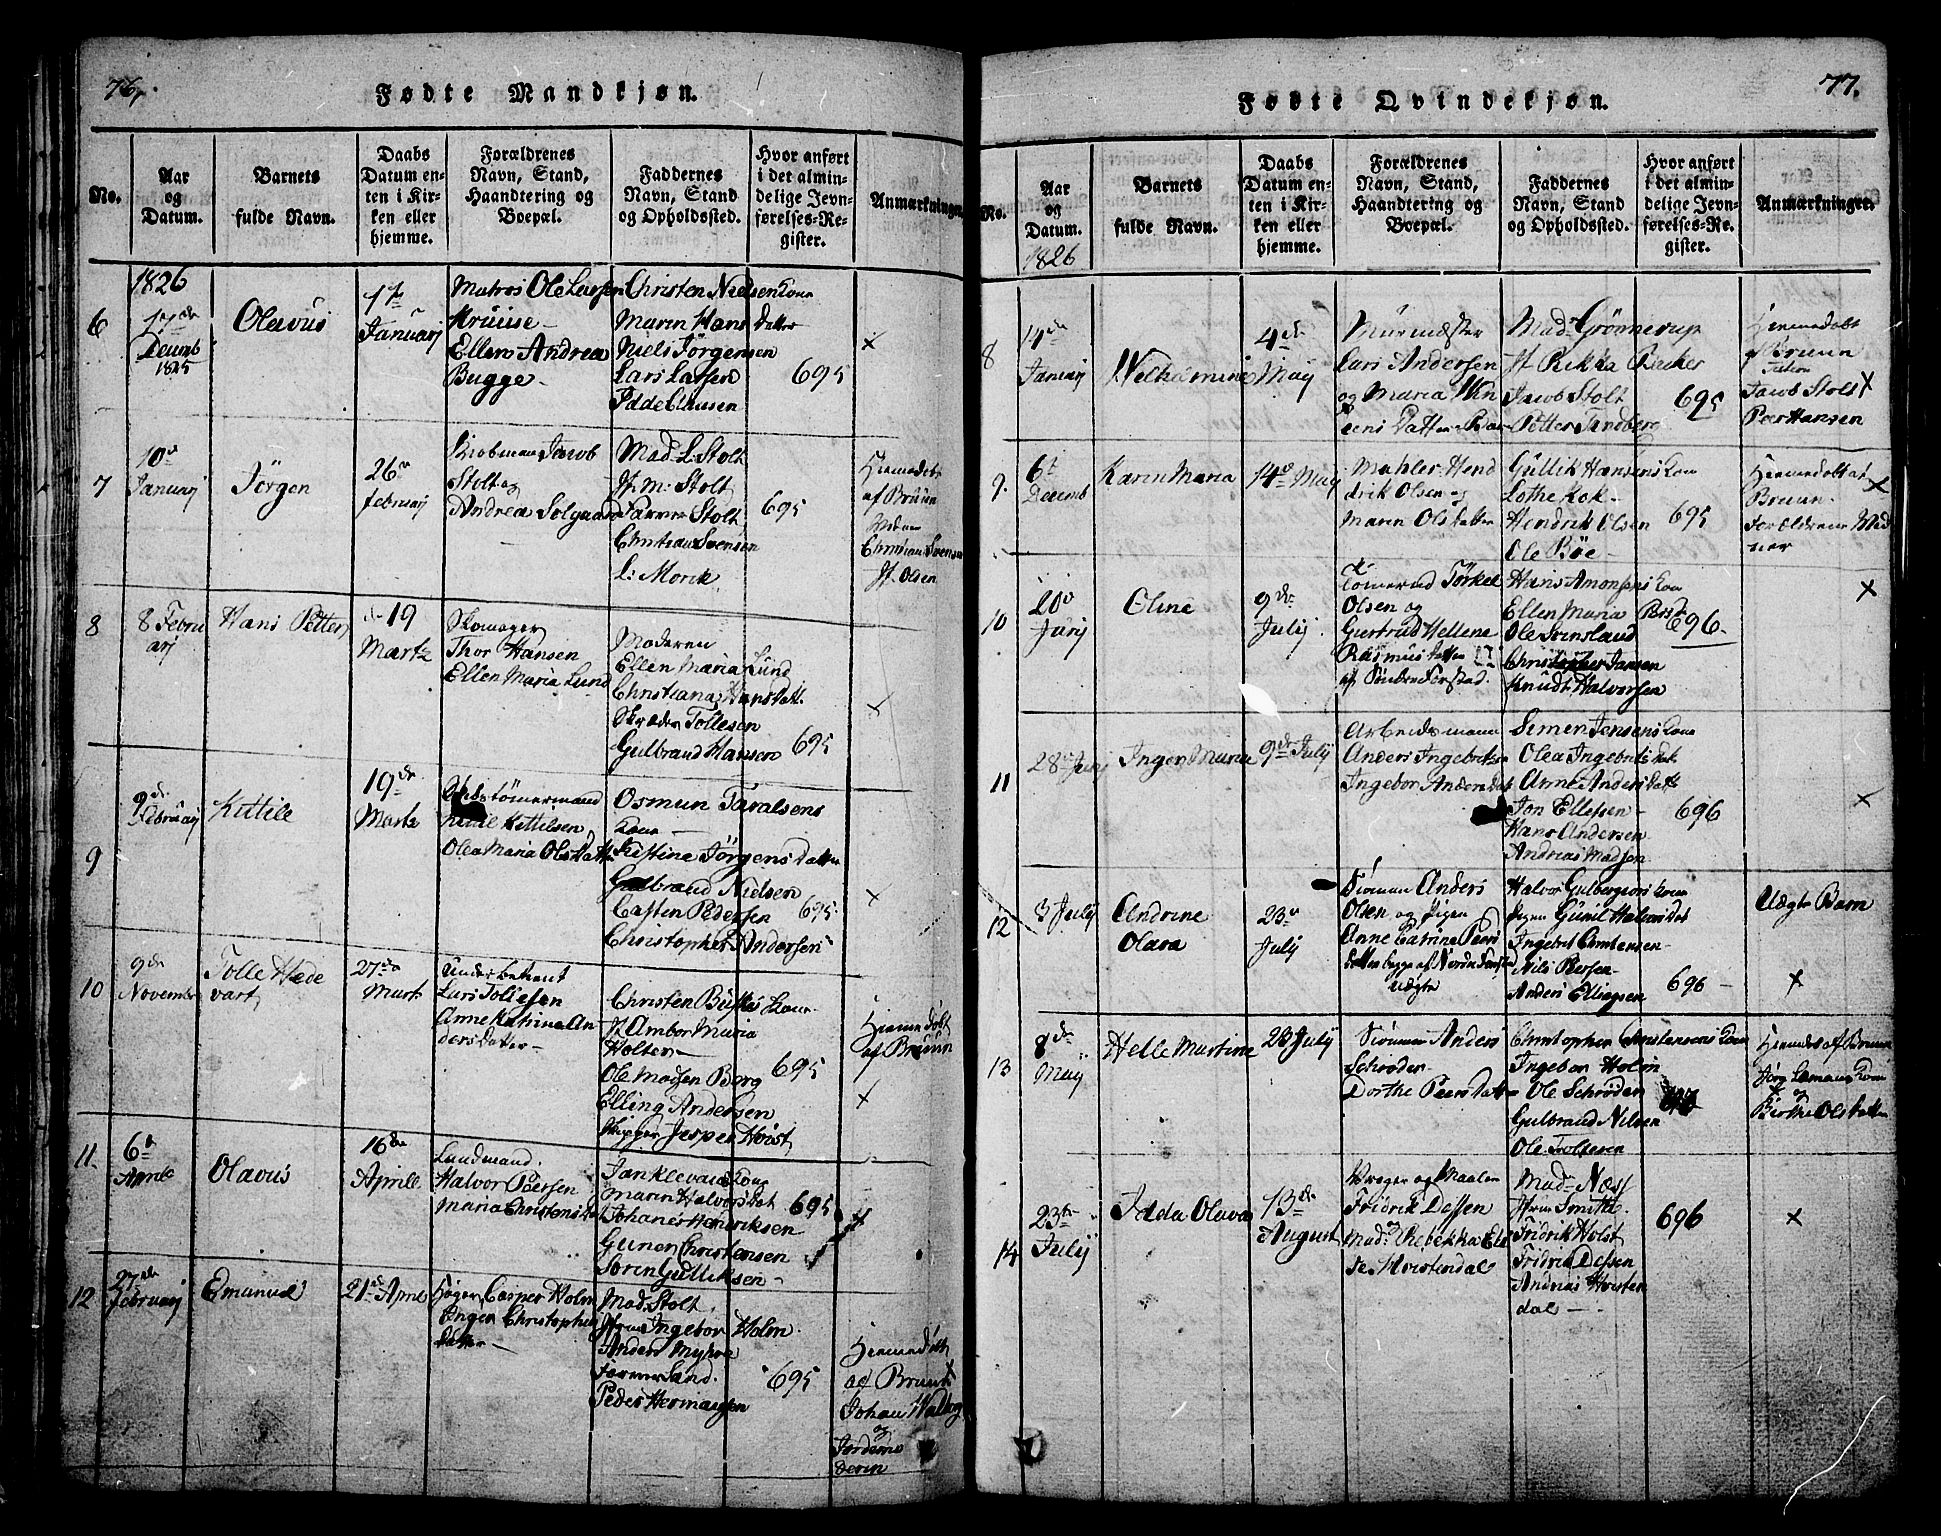 76.
Fødte Mandkjøn.
No.
Aar
og
Datum.
Barnets
fulde Navn.
Daabs
Datum en-
ten i Kir-
ken eller
hjemme.
Forældrenes
Navn, Stand,
Haandtering og
Boepæl.
Faddernes
Navn, Stand
og Opholdssted.
Hvor anført
i det almin-
delige Jevn-
førelses-Re-
gister.
Anmærkninger.
1826
6
17de
Decemb
1825
Olavus
1te
Januarj
Matros Ole Larsen
Kruuse
Ellen Andrea
Bugge
Christen Nielsen Kone
Maren Hans Datter
Niels Jörgensen
Lars Larsen
Idde Clausen
695
x
7
10de
Januarj
Jörgen
26de
Februarj
Kiöbmand Jacob
Stolt og
Andrea Solgaard
Mad. L. Stolt
Jf. M. Stolt
Stolt
Christian Svensen
L. Morck
695
Hiemmedöbt
af Bruun
Christian Svensen
Jf. Olsen
8
8 Febru
arj
Hans Petter
19
Martz
Skomager
Thor Hansen
Ellen Maria Lund
Moderen
Ellen Maria Lund
Christiana Hansdatt.
Skræder Tollesen
Gulbrand Hansen
695
x
9
9de
Februarj
Kittile
19de
Martz
Skibstömermand
Kittilsen
Olea Maria Olsdatter
Osmun Taralsens
Kone
Kistine Jörgens Datter
Gulbrand Nielsen
Casten Pedersen
Christopher Andersen
695
x
10
9de
November
Tolle Hede
vart
27de
Mart.
Underbetient
Lars Tollesen
Anne Katrina An
ders Datter
Christen Kone
Jf. Ambor Maria
Holter
Ole Madsen Berg
Elling Andersen
Skipper Jesper Hoist
695
Hiemmedöbt
af Bruun
x
11.
6te
Aprile
Olavus
16de
Aprill
Landmand.
Halvor Peersen
Maria Christensda
Jan Klevans Kone
Maren Halvors Dat
Johanes Henriksen
Guner Christensen
Soren Gulliksen
695
12
27de
Februarj
Emanuel
21de April
Höger Casper Holm
Inger Christophers
datter
Mad. Stolt.
Jfrue Ingebor Holm.
Anders Myhre
Sand.
Peder Hermansen
695
Hiemmedöbt
af Bruun
Johan Walberg
og
Jordemo
deren
77.
Fødte Qvindekjøn.
No.
Aar
og
Datum.
1826
Barnets
fulde Navn.
Daabs
Datum en-
ten i Kir-
ken eller
hjemme.
Forældrenes
Navn, Stand,
Haandtering og
Boepæl.
Faddernes
Navn, Stand
og Opholdssted.
Hvor anført
i det almin-
delige Jevn-
førelses-Re-
gister.
Anmærkninger.
8
14de
Januarj
Welhelmine
4de
May
Muurmester
Lars Andersen
og Maria
Mad. Grönnerup
Jf. Rikka Becker
Jacob Stolt
Petter Sandberg
695
Hiemmedöbt
af Bruun
Jacob Stolt
Peer Hansen
x
9.
6te
Decemb
Karen Maria
14de May
Mahler Hend
rik Olsen og
Maren Olsdatter
Gullik Hansens Kone
Lothe Kok
Hendrik Olsen
Ole Böe
695
Hiemmedöbt af
Bruun.
Forældrene
x
10
20de
Junj
Oline
9de
Julij
Tömermd Törkel
Olsen og
Gurtrud Hellene
Rasmus datter
af Söndre Förstad.
Hans Amonsens Kone
Ellen Maria
Ole
Christopher Jansen
Knudt Halvorsen
696.
x
11
28de Junj
Inger Maria
9de Julij
Arbeidsmann
Anders Ingebretsen
Ingebor Andersdat
Simen Jensens Kone
Olea Ingebrets Dat
Anne Anders Datt
Jon Ellefsen
Hans Andersen
Andreas Madsen
696
x
12
3 Julij
Andrine
Olava
23de
Julij
Siömand Anders
Olsen og Pigen
Anne Catrine Peers
datter begge af Nordre Forstad
Uægte
Halvor Gulbrandsens Kone
Pigen Gunil Halvorsdat
Ingebret Christensen
Nils Persen
Anders Ellingsen
696
Uægte Barn
x
13
8de
May
Helle Martine
23 Julij
Siömand Anders
Schröder
Dorthe Peersdatter
Christopher Christensens Kone
Ingebor Holm
Ole Schröder
Gulbrand Nilsen
Ole Tollesen
Hiemmedöbt af Bruun
Kone
og
Berthe Olsdatter
14
23de
Julij
Idda Olava
13de
August
Vrager og Maaler
Fridrik Dessen
Mad. Rebekka El
se Hvistendal
Mad. Næss
Jfrue Smith.
Fridrik Holst
Fridrik Dessen
Andreas Hvisten
dal
696
x